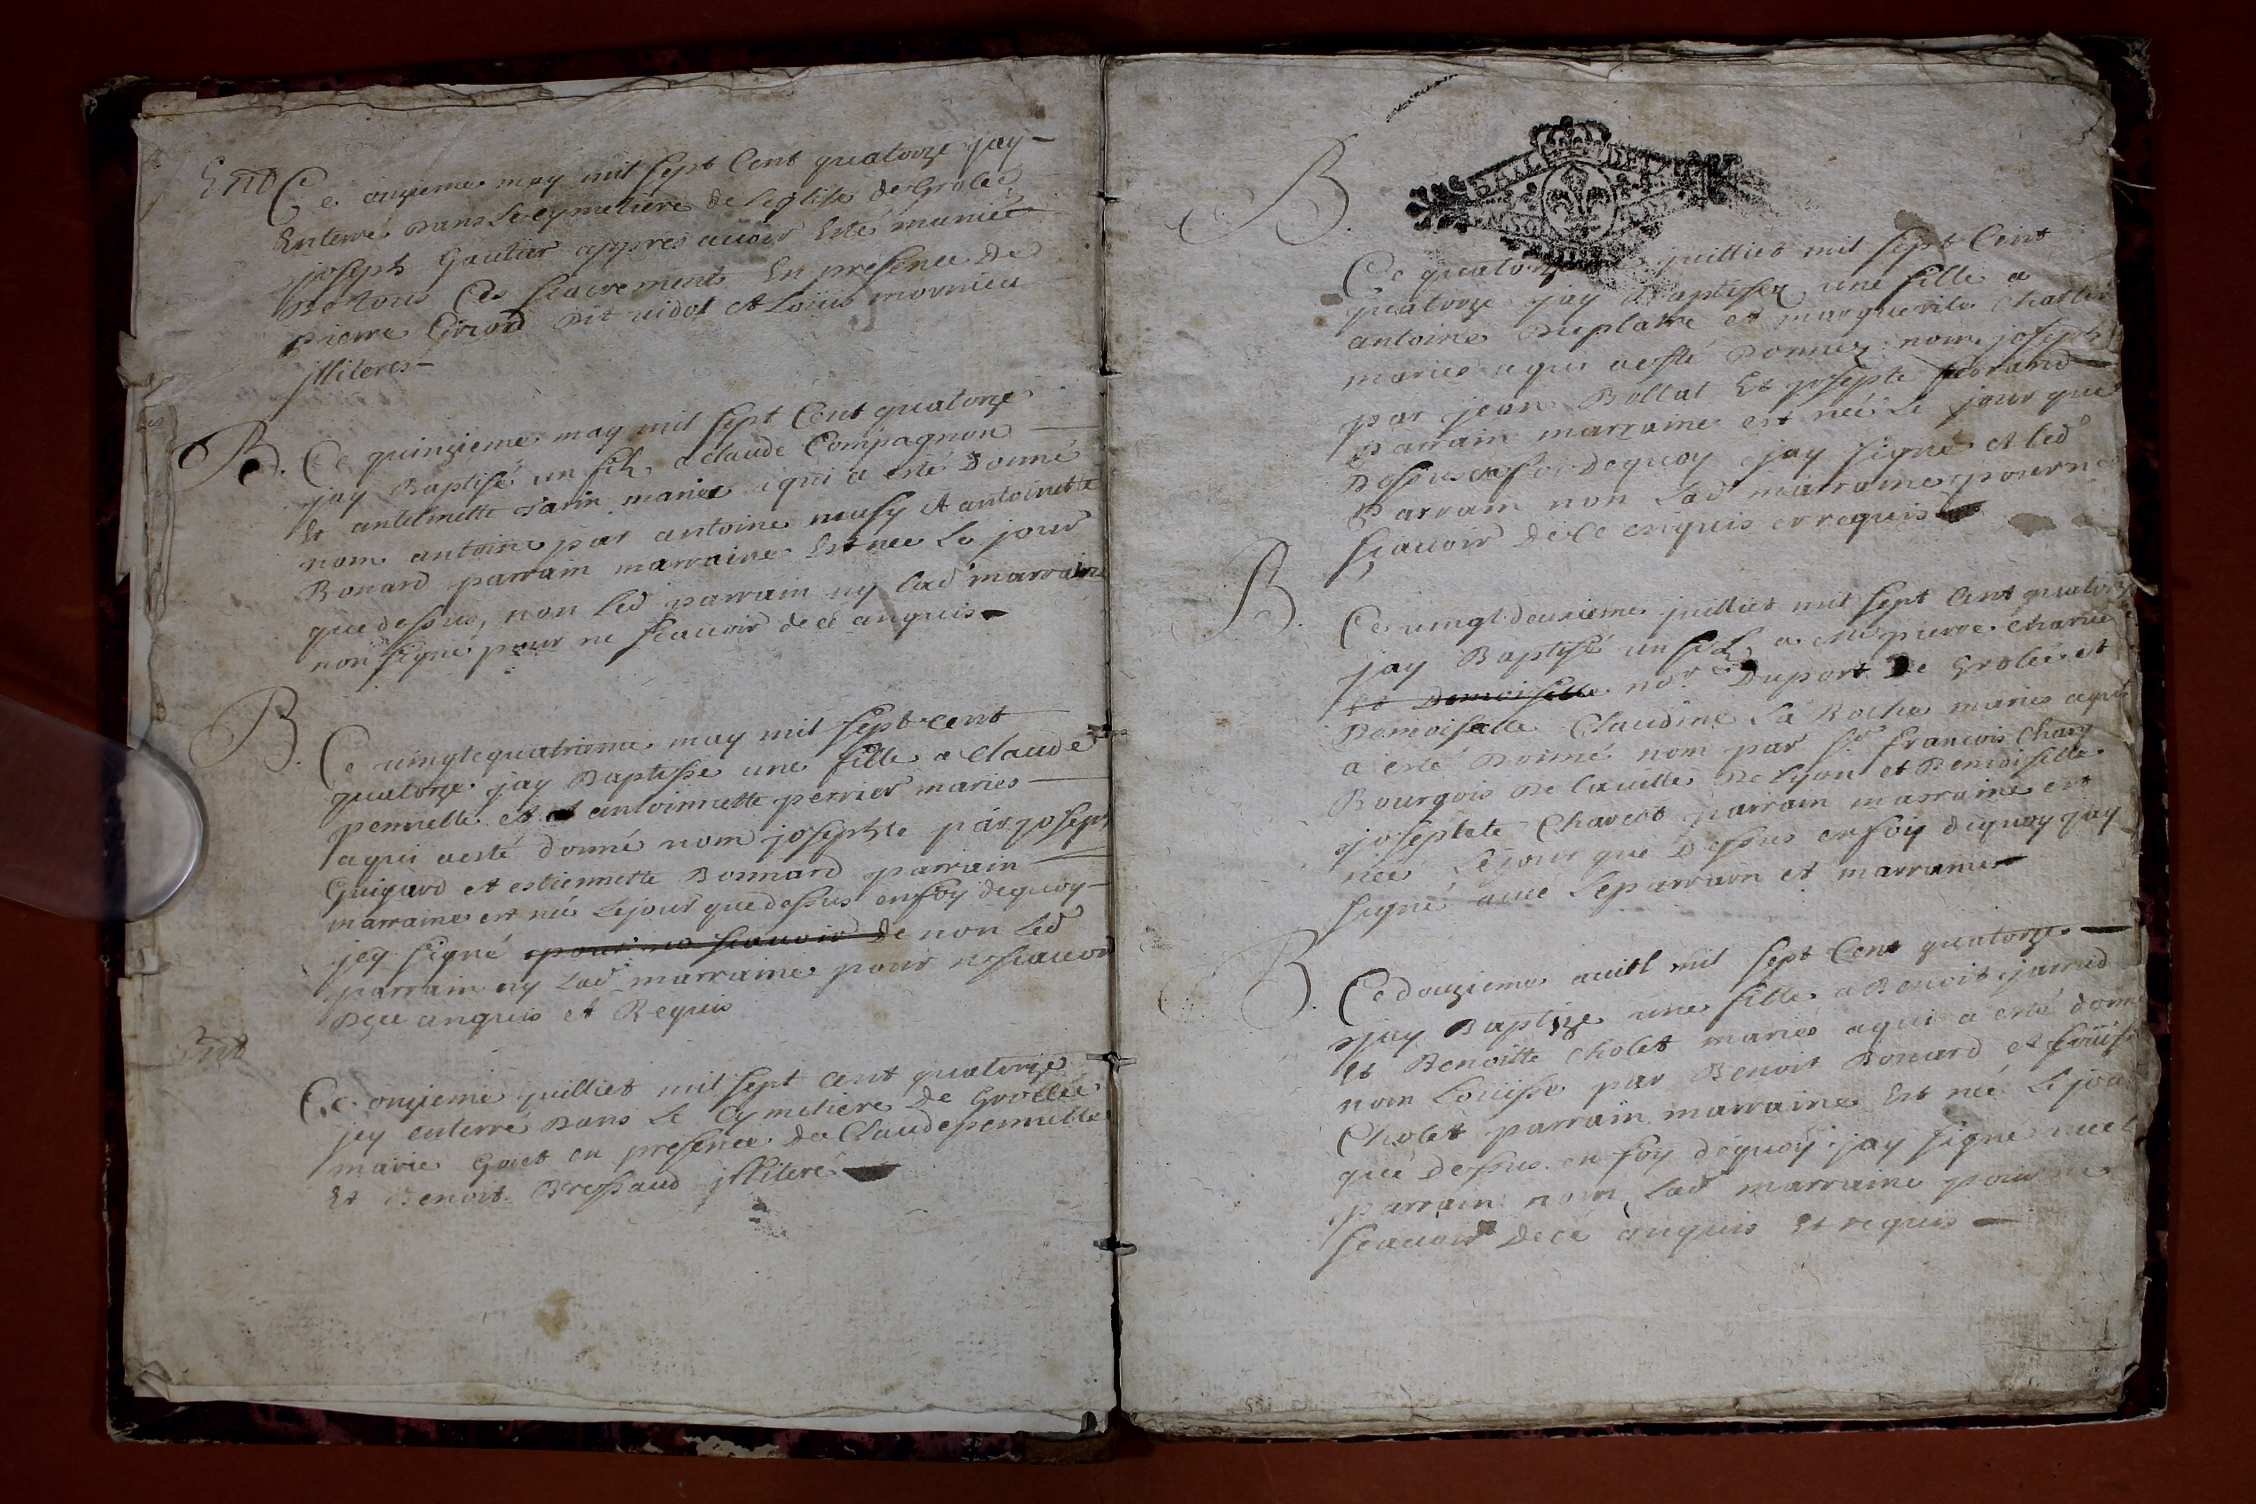 Ent
Ce onzieme may mil sept Cent quatorze jay
Enterre Dans Le cymetiere de Leglise de Grolée
joseph Gautier appres auoir Esté muniée
De tous Ces Sacrements En presence De
pierre Girard Dit uidot et Loüis mornieu
jlliteres
B.
Ce quinzieme may mil sept Cent quatorze
jay Baptisé un fils a claude Compagnon
Et antelmette maries a qui a esté Donné
nom antoine par antoine et antoinette
Bonard parrain marraine Est nee Le jour
que dessus, non Led parrain ny Lad marraine
non signé pour ne scauoir de ce anquis
B.
Ce uingtequatrieme may mil sept cent
quatorze jay Baptisse une fille a Claude
pennelle et antoinnette perrier maries
a qui aesté donné nom josephte par joseph
Guigard et estiennette Bonnard parrain
marraine est née Lejour que dessus enfoy dequoy
jey signé pour ne scauoir De non Led
parrain ny Lad marraine pour ne scauoir
Dece anquis et Requis
Ent
Ce onzieme juilliet mil sept cent quatorze
jey enterre Dans Le Cymetiere De Grollée
marie Goiet en presence de Claude pennelle
Et Benoit Bressaud jlliteré
B.
Ce quatorze juilliet mil sept Cent
quatorze jay Baptisez une fille a
antoine Duplatre et marguerite
maries a qui aesté Donnez nom joseph
par jean Bollat Et josepte
Parrain marraine est née Le jour que
Desus enfoi Dequoy jay signé et led
Parrain non Lad marraine pour ne
scauoir de ce enquis et requis
B.
Ce uingt deuxieme juilliet mil sept Cent quatorze
jay Baptisé un fils a pierre
Et Demoiselle nore Duport De Grolée et
Demoiselle Claudine La Roche maries a qui
a esté Donné nom par Sr francois
Bourgois De lauille De Lyon et Demoiselle
josephte parrain marraine est
née Lejour que Dessus enfoy dequoy jay
signé auec Leparrain et marraine
B.
Ce douzieme autl mil sept Cent quatorze
jay Baptize une fille a Benoit jarrud
Et Benoitte Cholet mariés a qui a esté donné
nom Loüisse par Benoit Bonard et Loüise
Cholet parrain marraine Est née Le jour
que dessus en foy dequoy jay signé auec
parrain non Lad marraine pour ne
scauoir Dece anquis Et requis